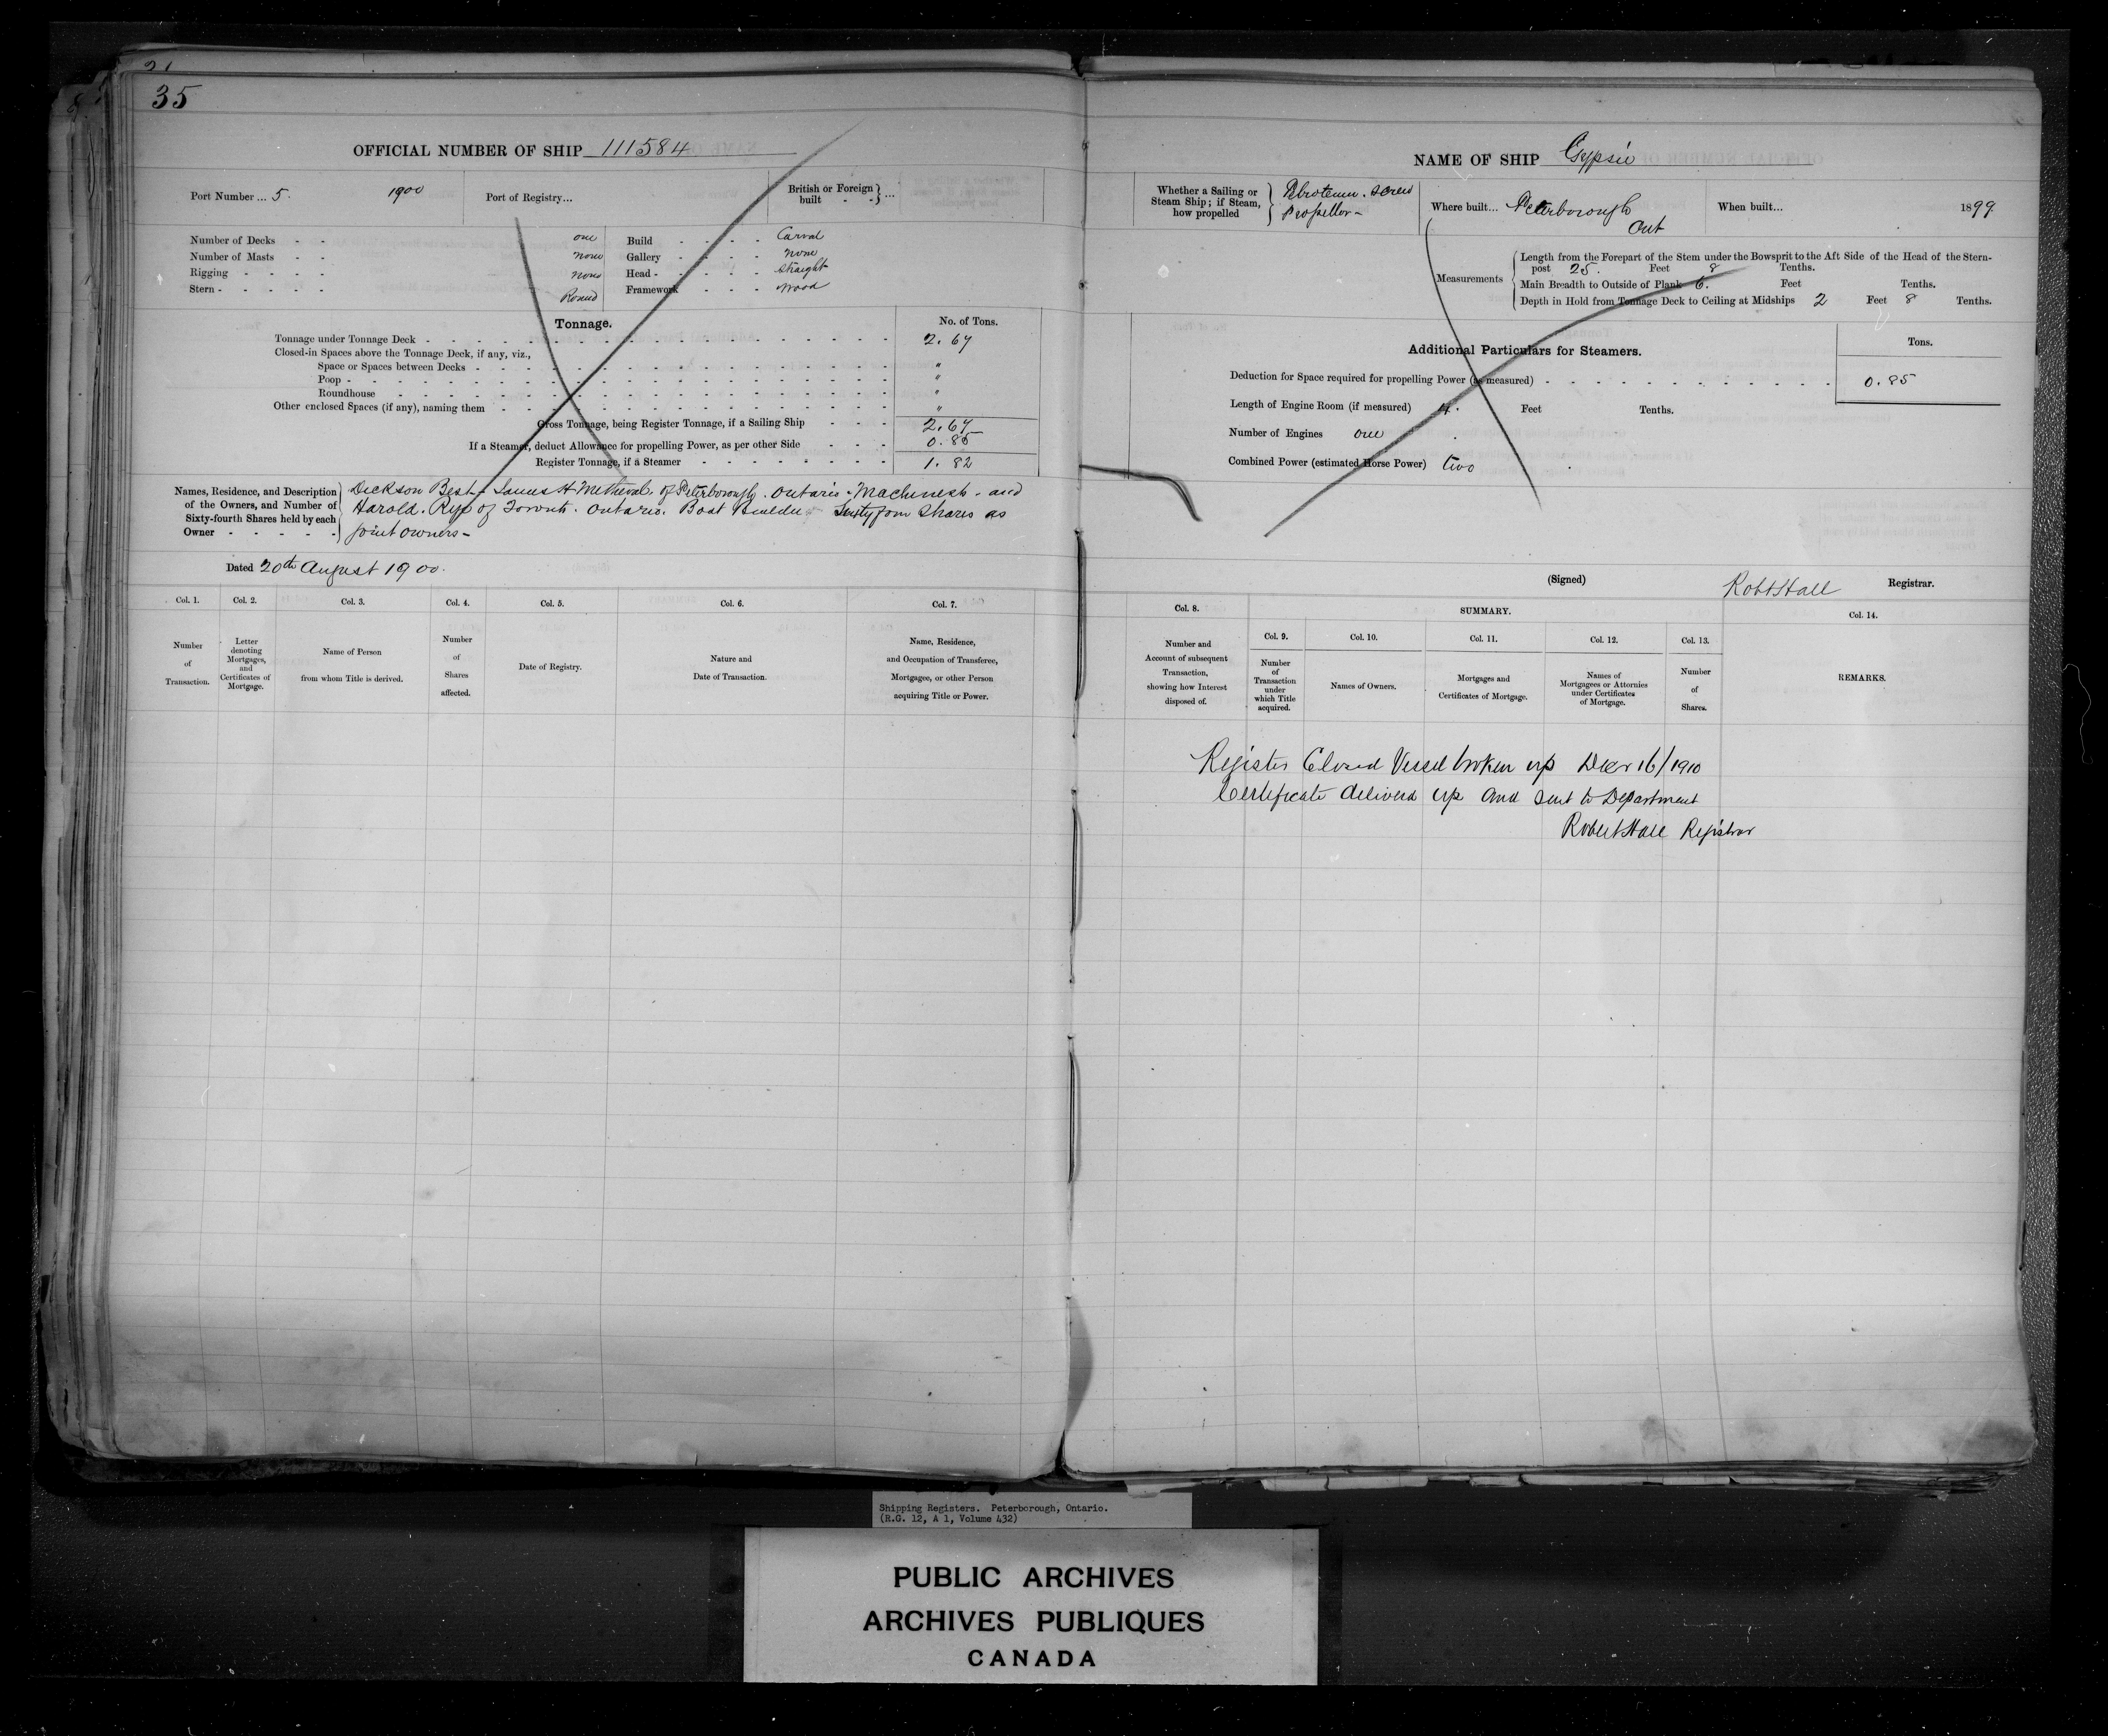 35
OFFICIAL NUMBER OF SHIP 111584
Port Number ... 5. 1900
Port of Registry...
British or Foreign built - - } ...
Number of Decks - - one
Number of Masts - - none
Rigging - - - - none
Stern - - - - - Round
Build - - - - Carval
Gallery - - - - none
Head - - - - - straight
Framework - - - wood
Tonnage.
No. of Tons.
Tonnage under Tonnage Deck - 2.67
Closed-in Spaces above the Tonnage Deck, if any, viz.,
Space or Spaces between Decks - "
Poop - "
Roundhouse - "
Other enclosed Spaces (if any), naming them - "
Gross Tonnage, being Register Tonnage, if a Sailing Ship - - - 2.67
If a Steamer, deduct Allowance for propelling Power, as per other Side - - - 0.85
Register Tonnage, if a Steamer - 1.82
Names, Residence, and Description of the Owners, and Number of Sixty-fourth Shares held by each Owner - - - - -
Dickson Best & James H of Peterborough. Ontario - Machinests - and
Harold. of Toronto. Ontario. Boat Builder Sixty four Shares as
joint owners -
Dated 20th August 1900.
Col. 1.
Number of Transaction.
Col. 2.
Letter denoting Mortgages, and Certificates of Mortgage.
Col. 3.
Name of Person from whom Title is derived.
Col. 4.
Number of Shares affected.
Col. 5.
Date of Registry.
Col. 6.
Nature and Date of Transaction.
Col. 7.
Name, Residence, and Occupation of Transferee, Mortgagee, or other Person acquiring Title or Power.
NAME OF SHIP Gypsie
Whether a Sailing or Steam Ship; if Steam, how propelled
screw
Propellor -
Where built... Peterborough
Ont
When built... 1899
Measurements
Length from the Forepart of the Stem under the Bowsprit to the Aft Side of the Head of the Stern-
post 25. Feet 8 Tenths.
Main Breadth to Outside of Plank 6. Feet Tenths.
Depth in Hold from Tonnage Deck to Ceiling at Midships 2 Feet 8 Tenths.
Additional Particulars for Steamers.
Tons.
Deduction for Space required for propelling Power (as measured) - 0.85
Length of Engine Room (if measured) 4. Feet Tenths.
Number of Engines one
Combined Power (estimated Horse Power) two
(Signed) Robt Hall Registrar.
Col. 8.
Number and Account of subsequent Transaction, showing how Interest disposed of.
SUMMARY.
Col. 9.
Number of Transaction under which Title acquired.
Col. 10.
Names of Owners.
Col. 11.
Mortgages and Certificates of Mortgage.
Col. 12.
Names of Mortgagees or Attornies under Certificates of Mortgage.
Col. 13.
Number of Shares.
Col. 14.
REMARKS.
Register Closed Vessel broken up Decr 16/1910
Certificate delivered up and sent to Department
Robert Hall Registrar
Shipping Registers. Peterborough, Ontario.
(R.G. 12, A 1, Volume 432)
PUBLIC ARCHIVES
ARCHIVES PUBLIQUES
CANADA